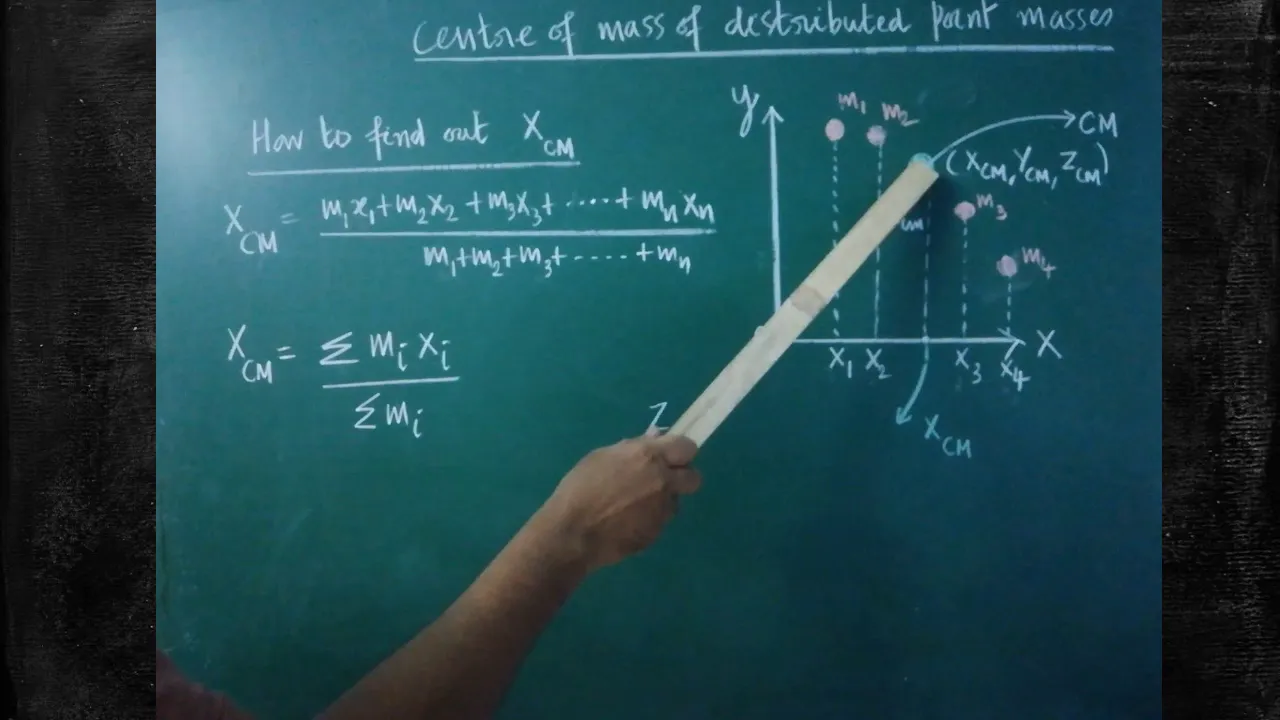 Centre of mass of destributed point masses
How to find out X_CM
X_CM = (m₁x₁+m₂x₂+m₃x₃+.....+mₙxₙ)/(m₁+m₂+m₃+.....+mₙ)
X_CM = Σmᵢxᵢ/Σmᵢ
y
m₁ m₂
CM
(X_CM, Y_CM, Z_CM)
m₃
CM
m₄
X
x₁ x₂ x₃ x₄
Z
X_CM